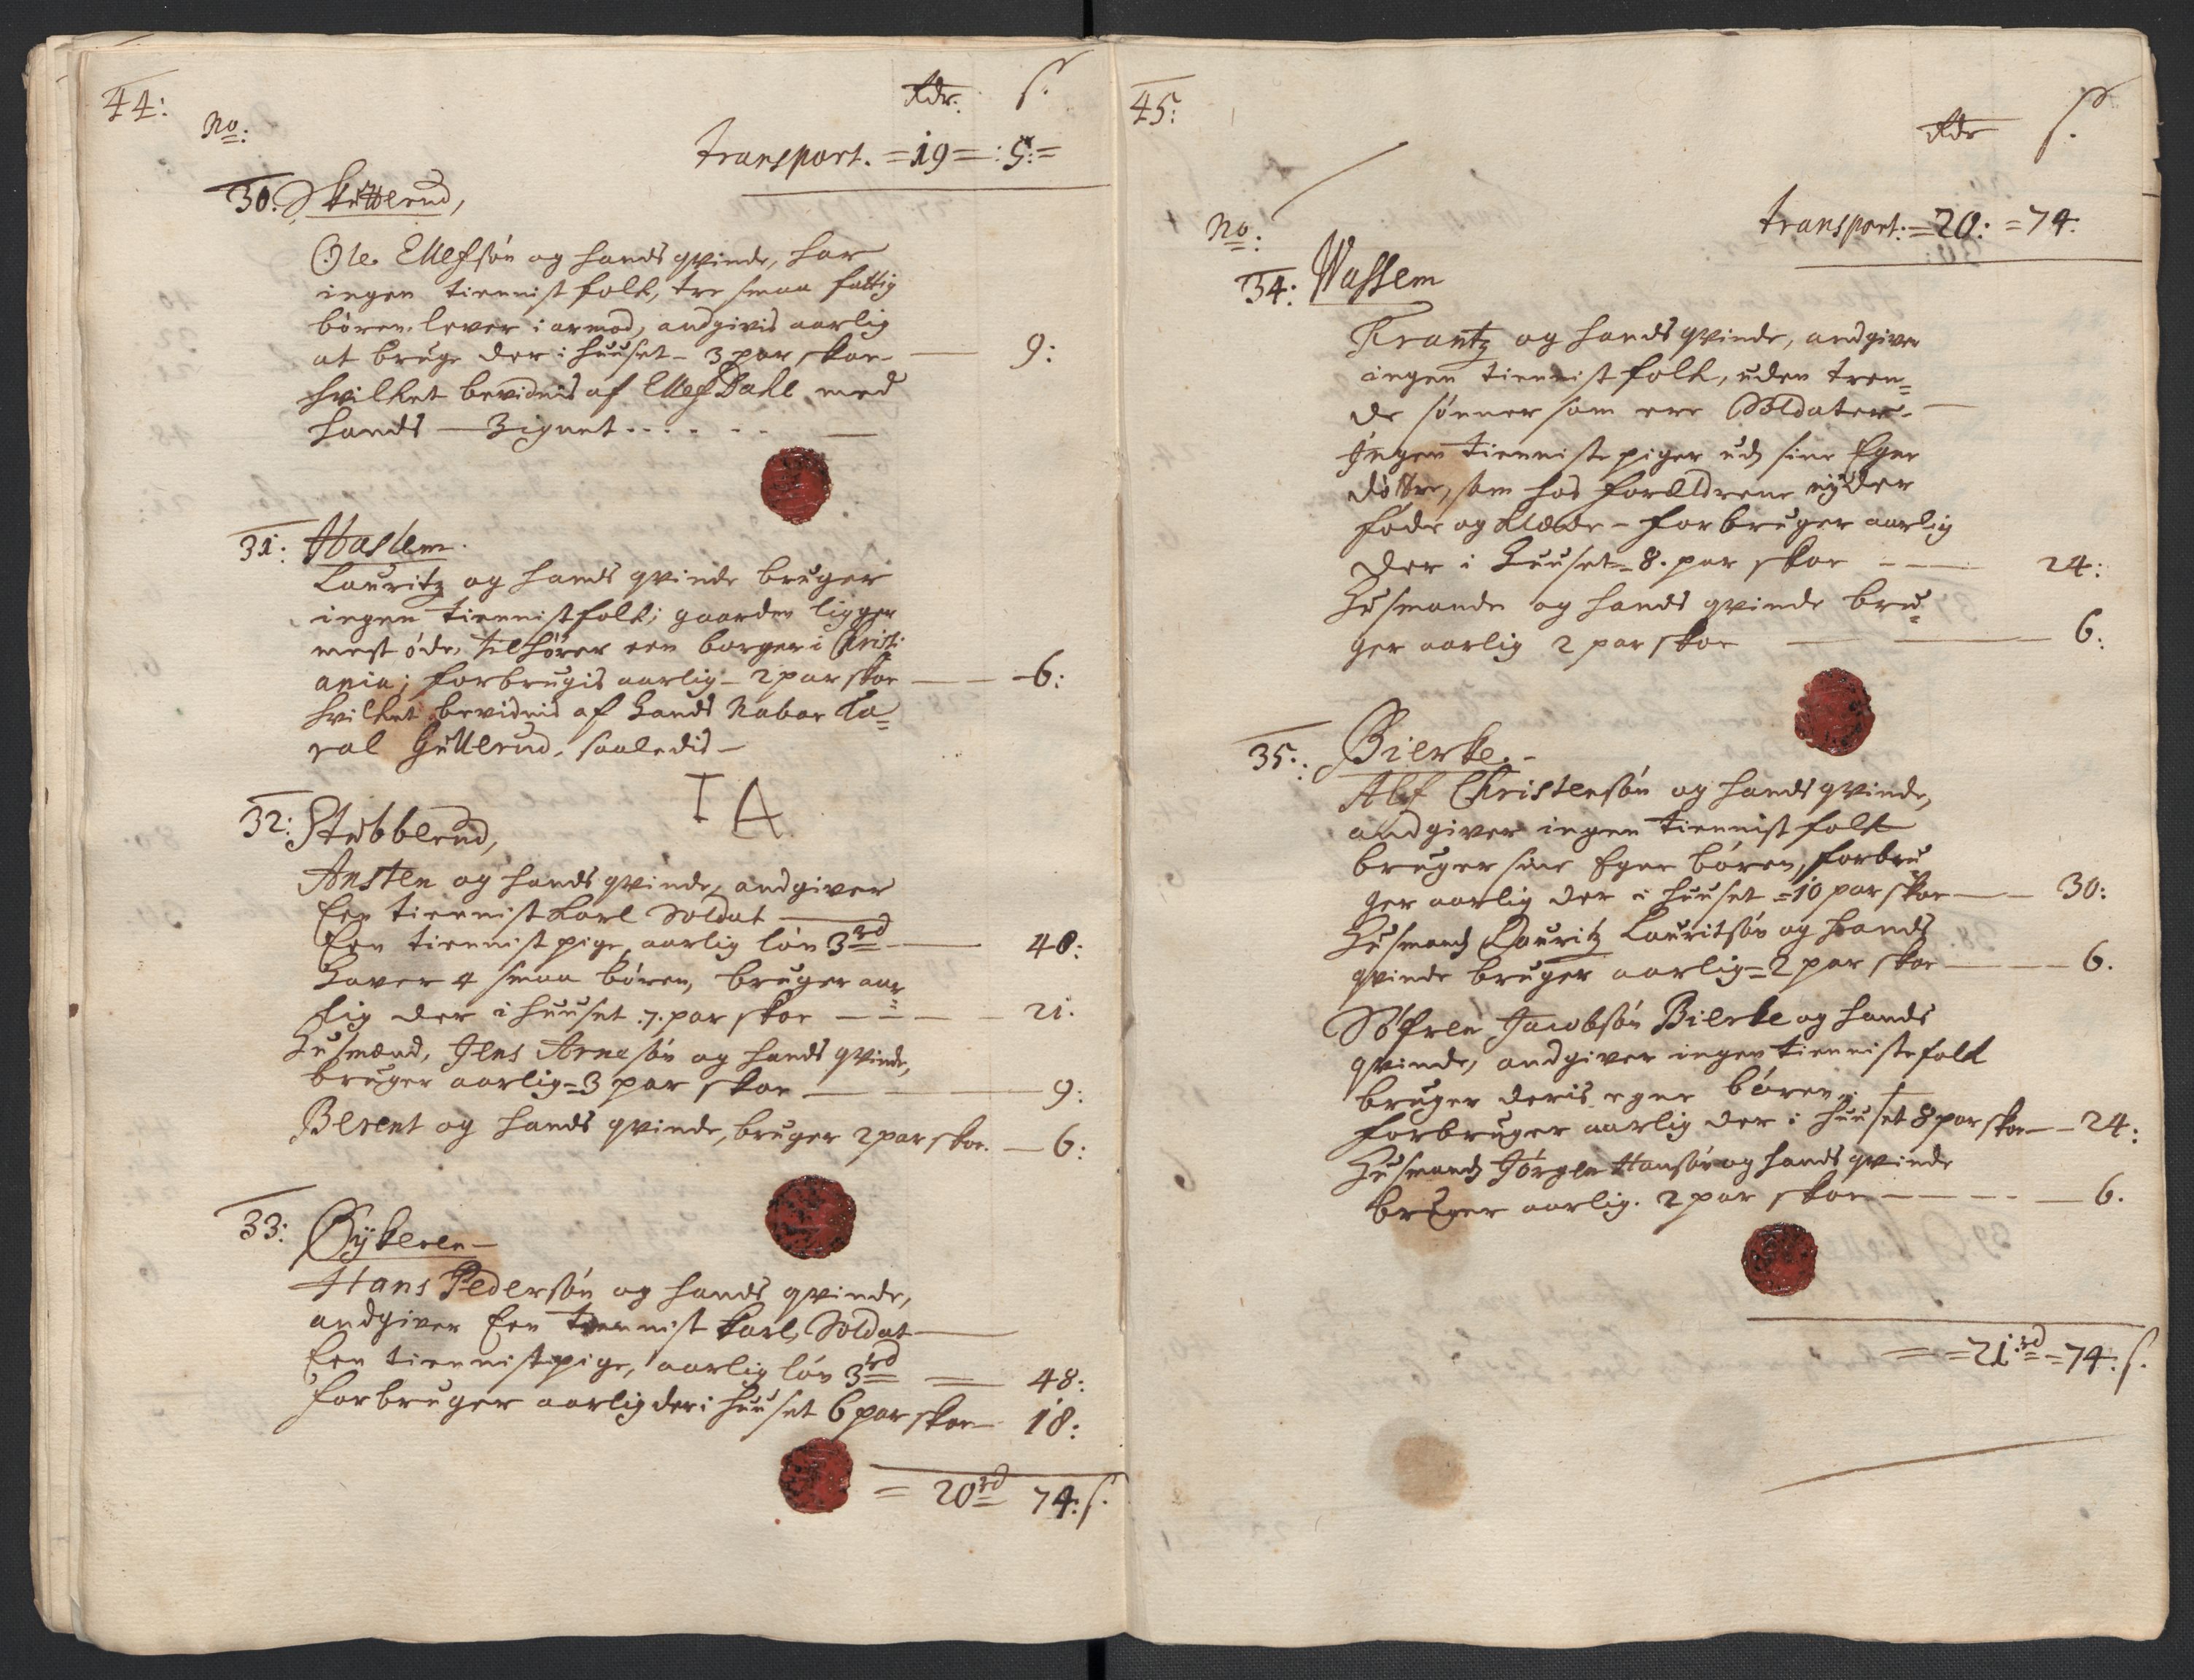 44:
No:
Rdr. s.
transport. = 19 = : 5: =
30. Skutterud,
Ole Ellefsøn og hands qvinde, har
ingen tiennist folk, tre smaa fattig
børen, lever i armod, andgivis aarlig
at bruge der i huuset - 3 par skoe - 9:
hvilket bevidnis af Ellef Dahl med
hands Zignet
31: Haslem.
Lauritz og hands qvinde bruger
ingen tiennistfolk; gaarden ligger
mest øde, tilhører een borger i Christi:
ania; forbrugis aarlig - 2 par skoe - 6:
hvilket bevidnis af hands Nabor Ta=
ral Gullerud, saaledis -
T A
32: Stubblerud,
Ansten og hands qvinde, andgiver
Een tiennist karl Soldat
Een tiennist pige, aarlig løn 3 rd - 48:
haver 4 smaa børen, bruger aar=
lig der i huuset .7. par skoe - 21.
Husmænd, Jens Arnesøn og hands qvinde,
bruger aarlig = 3 par skoe - 9:
Berent og hands qvinde, bruger 2 par skoe. - 6:
33: Øÿkeren -
Hans Pedersøn og hands qvinde,
andgiver Een tiennist karl, Soldat
Een tiennistpige, aarlig løn 3 rd = 48:
forbruger aarlig der i huuset 6 par skoe - 18:
= 20 rd 74: s.
45:
Rdr s.
No:
transport: = 20: = 74:
34: Wassem
Frantz og hands qvinde, andgiver
ingen tiennist folk, uden tren=
de sønner som ere Soldater -
Ingen tienniste piger ud sine Egne
døttre, som hos forældrene nÿder
føde og klæde - forbruger aarlig
der i huuset = 8. par skoe - 24:
Husmande og hands qvinde bru=
ger aarlig 2 par skoe - 6:
35: Bierke. -
Alf Christensøn og hands qvinde,
andgiver ingen tiennist folk
bruger sine Egne børen, forbru=
ger aarlig der i huuset = 10 par skoe - 30:
Husmand Lauritz Lauritsøn og hands
qvinde bruger aarlig = 2 par skoe - 6.
Søfren Jacobsøn Bierke og hands
qvinde, andgiver ingen tiennistefolk
bruger deris egne børen.
forbruger aarlig der i huuset 8 par skoe - 24:
Husmand Jørgen Hansøn og hands qvinde
bruger aarlig. 2 par skoe - 6.
= = 21 rd = 74: s.